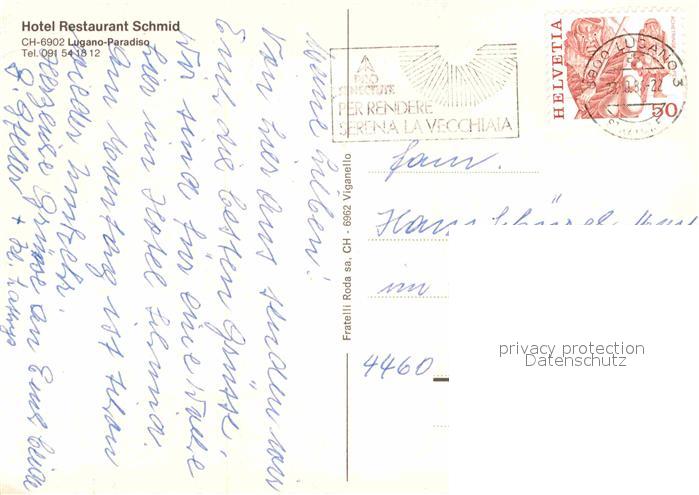 Hotel Restaurant Schmid
CH-6902 Lugano-Paradiso
Tel. 091 54 18 12
Meine Lieben!
Von hier aus senden wir
Euch die besten Grüsse.
Wir sind für eine Woche
hier im Hotel Schmid.
Am Montag ist schon
wieder
Herzliche Grüsse an Euch beide
Fratelli Roda sa, CH - 6962 Viganello
PRO
SENECTUTE
PER RENDERE
SERENA LA VECCHIAIA
HELVETIA
50
6900 LUGANO 3
Fam.
Hans
im
4460
privacy protection
Datenschutz